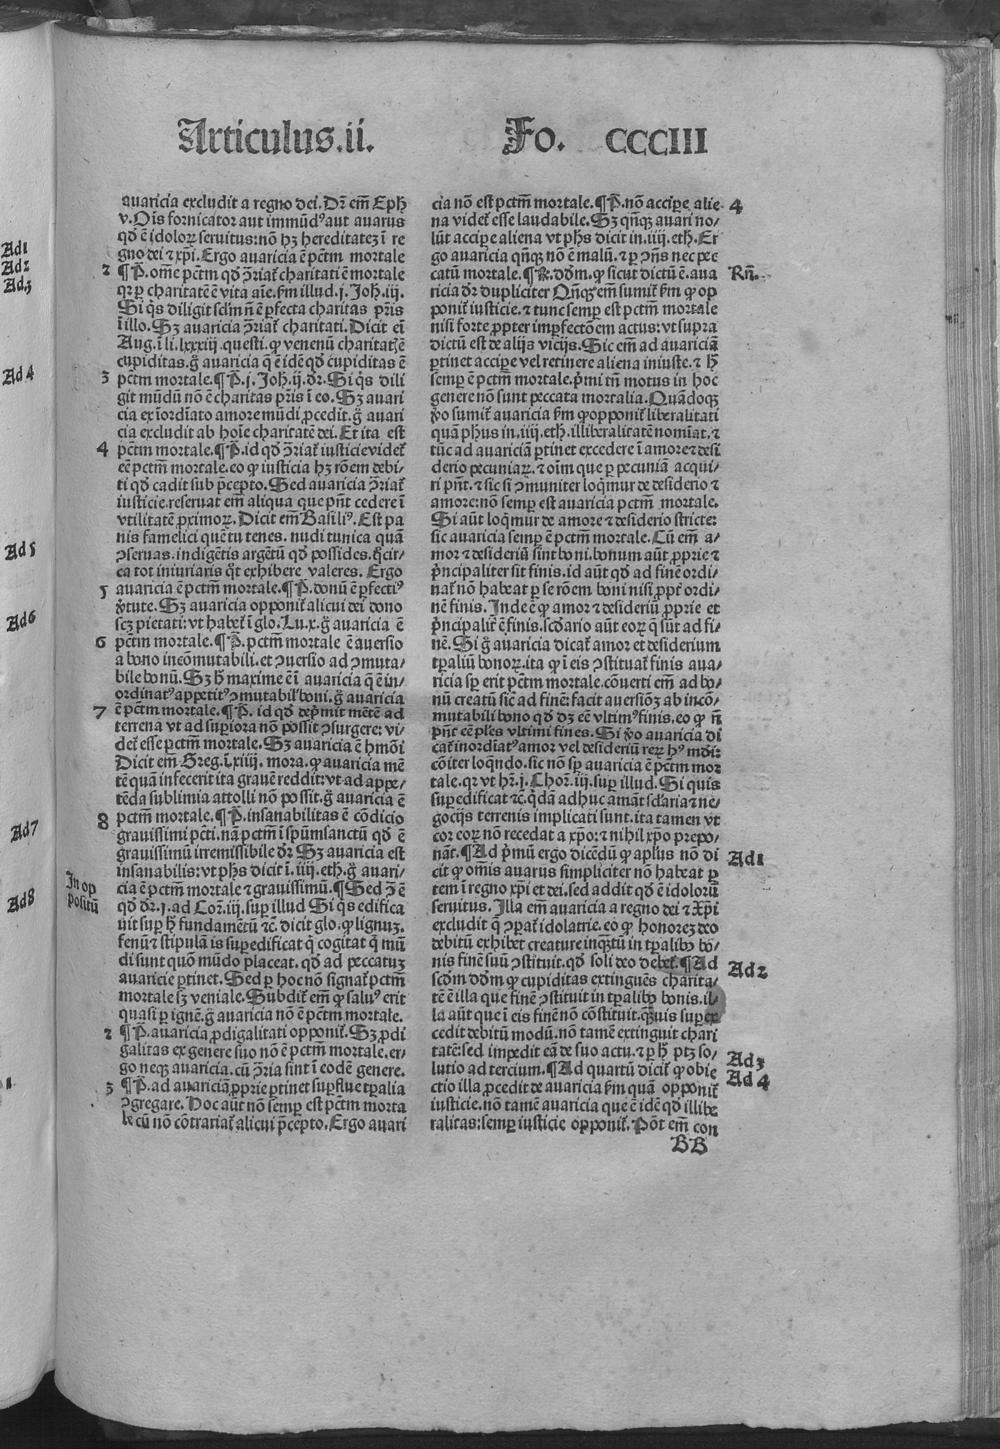 Articulus.ii.
Fo. CCCIII
auaricia excludit a regno dei. Dr̄ em̄ Eph
v. Oīs fornicator aut immūdꝰ aut auarus
qd̄ ē idoloꝝ seruitus: nō hꝫ hereditateꝫ ī re
gno dei ⁊ xp̄i. Ergo auaricia ē pctm̄ mortale
2 ¶P̄. om̄e pctm̄ qd̄ ꝯ̄riat᷑ charitati ē mortale
qꝛ ꝑ charitatē ē vita aīe. ẜm illud. j. Joh̄. iij.
Si q̄s diligit sclm̄ n̄ ē ꝑfecta charitas pr̄is
ī illo. Sꝫ auaricia ꝯ̄riat᷑ charitati. Dicit eī
Aug. ī li. lxxxiij. questi. ꝙ venenū charitatꝭ ē
cupiditas. g̊ auaricia q̄ ē idē qd̄ cupiditas ē
3 pctm̄ mortale. ¶P̄. j. Joh̄. ij. dr̄. Si q̄s dili
git mūdū nō ē charitas pr̄is ī eo. Sꝫ auari
cia ex īordīato amore mūdi ꝓcedit. g̊ auari
cia excludit ab hoīe charitatē dei. Et ita est
4 pctm̄ mortale. ¶P̄. id qd̄ ꝯ̄riat᷑ iusticie videt᷑
eē pctm̄ mortale. eo ꝙ iusticia hꝫ rōem debi-
ti qd̄ cadit sub p̄cepto. Sed auaricia ꝯ̄riat᷑
iusticie. reseruat em̄ aliqua que pn̄t cedere ī
vtilitatē ꝓximoꝝ. Dicit em̄ Basiliꝰ. Est pa
nis famelici quē tu tenes. nudi tunica quā
ꝯseruas. indigētis argētū qd̄ possides. q̄cir-
ca tot iniuriaris q̄t exhibere valeres. Ergo
5 auaricia ē pctm̄ mortale. ¶P̄. donū ē ꝑfectiꝰ
v̓tute. Sꝫ auaricia opponit᷑ alicui dei dono
scꝫ pietati: vt habet᷑ ī glo. Lu. x. g̊ auaricia ē
6 pctm̄ mortale. ¶P̄. pctm̄ mortale ē auersio
a bono incōmutabili. et ꝯuersio ad ꝯmuta-
bile bonū. Sꝫ h̄ maxime ē ī auaricia q̄ ē in-
ordinatꝰ appetitꝰ ꝯmutabil̓ boni. g̊ auaricia
7 ē pctm̄ mortale. ¶P̄. id qd̄ dep̄mit mētē ad
terrena vt ad superiora nō possit ꝯsurgere: vi-
det᷑ esse pctm̄ mortale. Sꝫ auaricia ē hm̄oi
Dicit em̄ Greg. ī. xiiij. mora. ꝙ auaricia mē
tē quā infecerit ita grauē reddit: vt ad appe-
tēda sublimia attolli nō possit. g̊ auaricia ē
8 pctm̄ mortale. ¶P̄. insanabilitas ē cōdicio
grauissimi pcti. nā pctm̄ ī spūmsanctū qd̄ ē
grauissimū irremissibile dr̄ Sꝫ auaricia est
insanabilis: vt ph̄s dicit ī. iiij. eth. g̊ auari-
cia ē pctm̄ mortale ⁊ grauissimū. ¶Sed ꝯ̄ ē
qd̄ dr̄. j. ad Cor. iij. suꝑ illud Si q̄s edifica
uit suꝑ h̄ fundamētū ⁊c̄. dicit glo. ꝙ lignuꝫ.
fenū ⁊ stipulā is superedificat q̄ cogitat q̄ mū
di sunt quō mūdo placeat. qd̄ ad peccatuꝫ
auaricie ꝑtinet. Sed ꝑ hoc nō signat᷑ pctm̄
mortale sꝫ veniale. Subdit᷑ em̄ ꝙ saluꝰ erit
quasi ꝑ ignē. g̊ auaricia nō ē pctm̄ mortale.
2 ¶P̄. auaricia ꝓdigalitati opponit᷑. Sꝫ ꝓdi
galitas ex genere suo nō ē pctm̄ mortale. er-
go neqꝫ auaricia. cū ꝯ̄ria sint ī eodē genere.
3 ¶P̄. ad auariciā ꝓprie ꝑtinet suꝑflue tꝑalia
ꝯgregare. Hoc aūt nō semꝑ est pctm̄ morta
le cū nō cōtrariat᷑ alicui p̄cepto. Ergo auari
In op
positū
cia nō est pctm̄ mortale. ¶P̄. nō acciꝑe alie- 4
na videt᷑ esse laudabile. Sꝫ qn̄qꝫ auari no-
lūt acciꝑe aliena vt ph̄s dicit in. iiij. eth. Er
go auaricia qn̄qꝫ nō ē malū. ⁊ ꝑ ꝯn̄s nec pec
catū mortale. ¶R̄. dd̄m. ꝙ sicut dictū ē. aua Rn̄.
ricia dr̄ dupliciter Qn̄qꝫ em̄ sumit᷑ ẜm ꝙ op
ponit᷑ iusticie. ⁊ tunc semꝑ est pctm̄ mortale
nisi forte ꝓpter imꝑfectōem actus: vt supra
dictū est de alijs vicijs. Sic em̄ ad auariciā
ꝑtinet acciꝑe vel retinere aliena iniuste. ⁊ h̄
semꝑ ē pctm̄ mortale. p̄mi tn̄ motus in hoc
genere nō sunt peccata mortalia. Quādoqꝫ
v̊o sumit᷑ auaricia ẜm ꝙ opponit᷑ liberalitati
quā ph̄us in. iiij. eth. illiberalitatē nomīat. ⁊
tūc ad auariciā ꝑtinet excedere ī amore ⁊ desi
derio pecuniaꝝ. ⁊ oīm que ꝑ pecuniā acqui-
ri pn̄t. ⁊ sic si ꝯmuniter loq̄mur de desiderio ⁊
amore: nō semꝑ est auaricia pctm̄ mortale.
Si aūt loq̄mur de amore ⁊ desiderio stricte:
sic auaricia semꝑ ē pctm̄ mortale. Cū em̄ a-
mor ⁊ desideriū sint boni. bonum aūt ꝓprie ⁊
p̄ncipaliter sit finis. id aūt qd̄ ad finē ordi-
nat᷑ nō habeat ꝑ se rōem boni nisi ꝓpt̓ ordi-
nē finis. Inde ē ꝙ amor ⁊ desideriū ꝓprie et
p̄ncipalit̓ ē finis. scd̄ario aūt eoꝝ q̄ sūt ad fi-
nē. Si g̊ auaricia dicat᷑ amor et desiderium
tꝑaliū bonoꝝ. ita ꝙ ī eis ꝯstituat᷑ finis aua-
ricia sꝑ erit pctm̄ mortale. cōuerti em̄ ad bo-
nū creatū sicē ad finē: facit auersiōꝫ ab incō-
mutabili bono qd̄ dꝫ eē vltimꝰ finis. eo ꝙ n̄
pn̄t eē ples vltimi fines. Si v̊o auaricia di
cat᷑ inordīatꝰ amor vel desideriū reꝝ hꝰ mūdi:
cōiter loq̄ndo. sic nō sꝑ auaricia ē pctm̄ mor
tale. qꝛ vt hr̄. j. Chor. iij. suꝑ illud. Si quis
suꝑedificat ⁊c̄. q̄dā adhuc amāt scl̓aria ⁊ ne-
gocijs terrenis implicati sunt. ita tamen vt
cor eoꝝ nō recedat a xp̄o: ⁊ nihil xp̄o prepo-
nāt. ¶Ad p̄mū ergo dicēdū ꝙ apl̓us nō di Ad 1
cit ꝙ om̄is auarus simpliciter nō habeat ꝑ
tem ī regno xp̄i et dei. sed addit qd̄ ē idolorū
seruitus. Illa em̄ auaricia a regno dei ⁊ Xp̄i
excludit q̄ ꝯꝑat᷑ idolatrie. eo ꝙ honoreꝫ deo
debitū exhibet creature inq̄ꝫtū in tꝑalibꝰ bo-
nis finē suū ꝯstituit. qd̄ soli deo debet᷑. ¶Ad
scd̄m dd̄m ꝙ cupiditas extinguēs charita- Ad 2
tē ē illa que finē ꝯstituit in tꝑalibꝰ bonis. il-
la aūt que ī eis finē nō cōstituit. q̄ꝫuis suꝑex
cedit debitū modū. nō tamē extinguit chari
tatē: sed impedit eā de suo actu. ⁊ ꝑ h̄ ptꝫ so- Ad 3
lutio ad tercium. ¶Ad quartū dicit᷑ ꝙ obie Ad 4
ctio illa ꝓcedit de auaricia ẜm quā opponit᷑
iusticie. nō tamē auaricia que ē idē qd̄ illibe
ralitas: semꝑ iusticie opponit᷑. Pōt em̄ con
BB
Ad 1
Ad 2
Ad 3
Ad 4
Ad 5
Ad 6
Ad 7
Ad 8